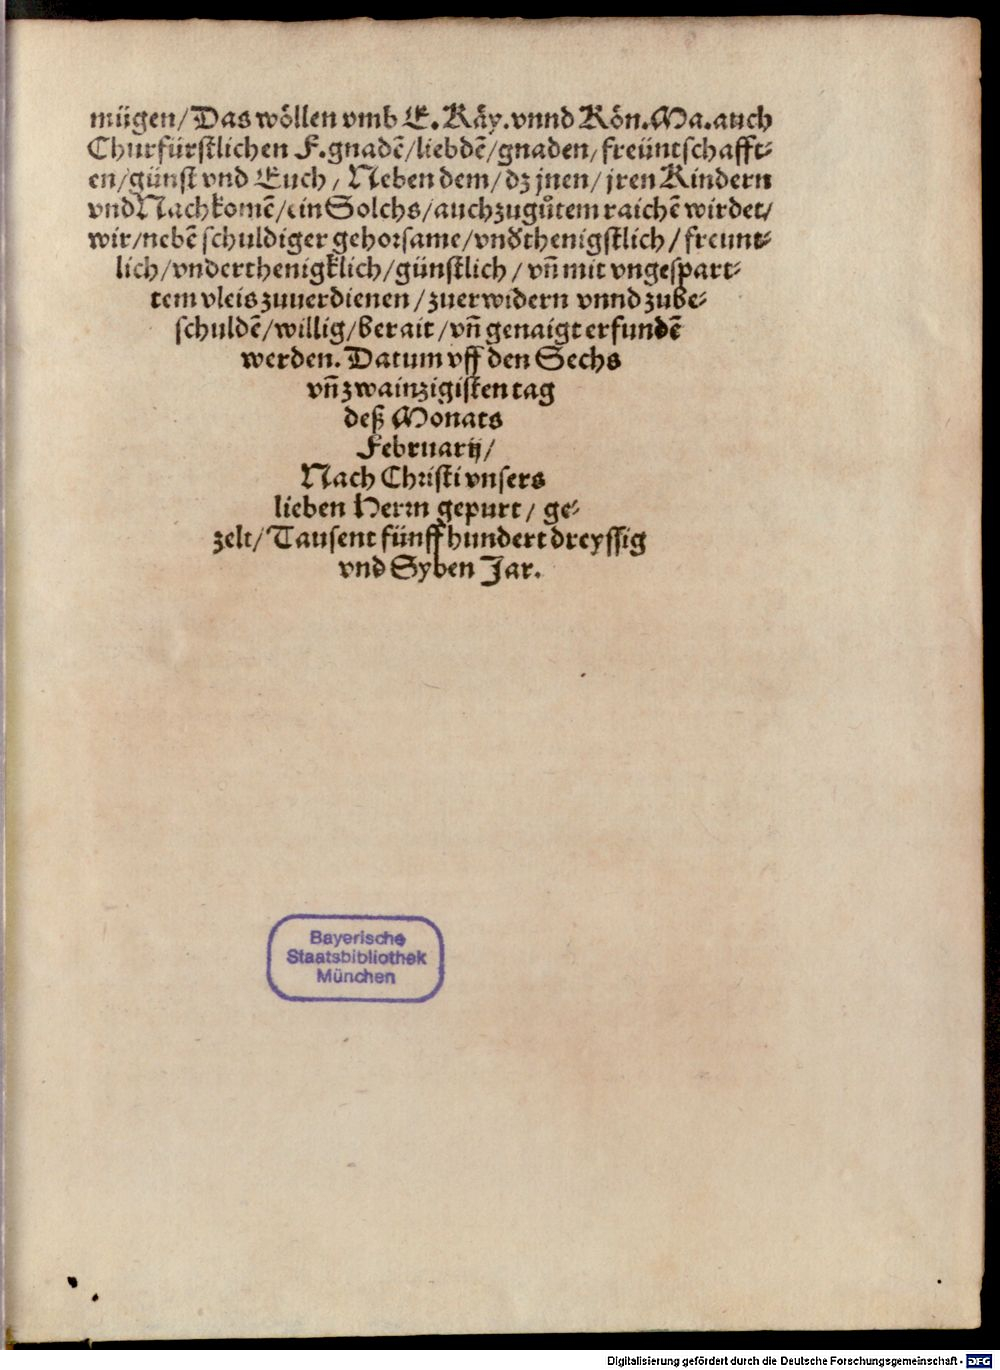 mügen/Das wöllen vmb E. Käy. vnnd Kön. Ma. auch
Churfürstlichen F. gnadē/liebdē/gnaden/freüntschafft⸗
en/günst vnd Euch/Neben dem/dz jnen/jren Kindern
vnd Nachkomē/ein Solchs/auch zugůtem raichē wirdet/
wir/nebē schuldiger gehorsame/vnd̕thenigstlich/freunt⸗
lich/vnderthenigklich/günstlich/vn̄ mit vngespart⸗
tem vleis zuuerdienen/zuerwidern vnnd zube⸗
schuldē/willig/berait/vn̄ genaigt erfundē
werden. Datum vff den Sechs
vn̄ zwainzigisten tag
deß Monats
Februarij/
Nach Christi vnsers
lieben Herrn gepurt/ge⸗
zelt/Tausent fünffhundert dreyssig
vnd Syben Jar.
Bayerische
Staatsbibliothek
München
Digitalisierung gefördert durch die Deutsche Forschungsgemeinschaft - DFG